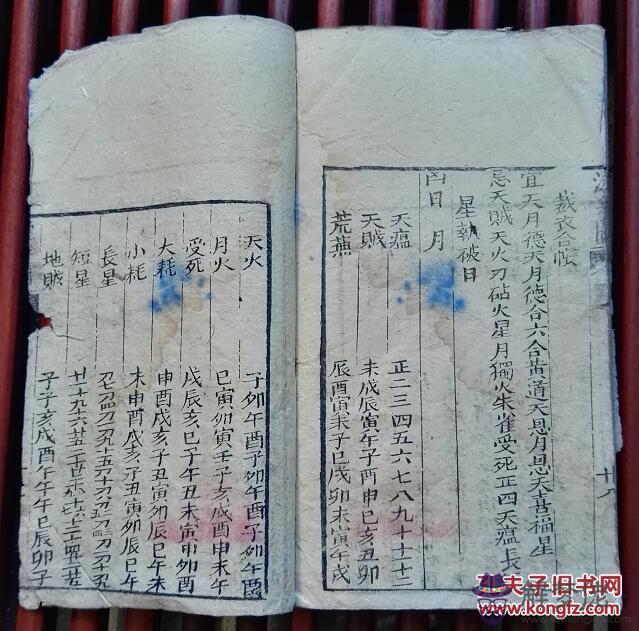 裁衣合帳
宜天月德天月德合六合黄道天恩月恩天喜福星
忌天賊天火刃砧火星月獨火朱雀受死正四天瘟長
星執破日
凶日 月 正二三四五六七八九十十十二
天瘟 未戌辰寅午子酉申巳亥丑卯
天賊 辰酉寅未子巳戌卯未寅午戌
荒蕪
天火 子卯午酉子卯午酉子卯午酉
月火 巳寅卯寅壬子亥戌酉申未午
受死 戌辰亥巳子午丑未寅申卯酉
大耗 申酉戌亥子丑寅卯辰巳午未
小耗 未申酉戌亥子丑寅卯辰巳午
長星
短星
地賊 子子亥戌酉午午午巳辰卯子
十八
夫子旧书网
www.kongfz.com